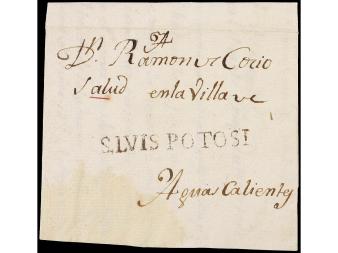 A
Dn. Ramon de Cosio
Salud en la Villa de
S.LVIS POTOSI
Aguas Calientes